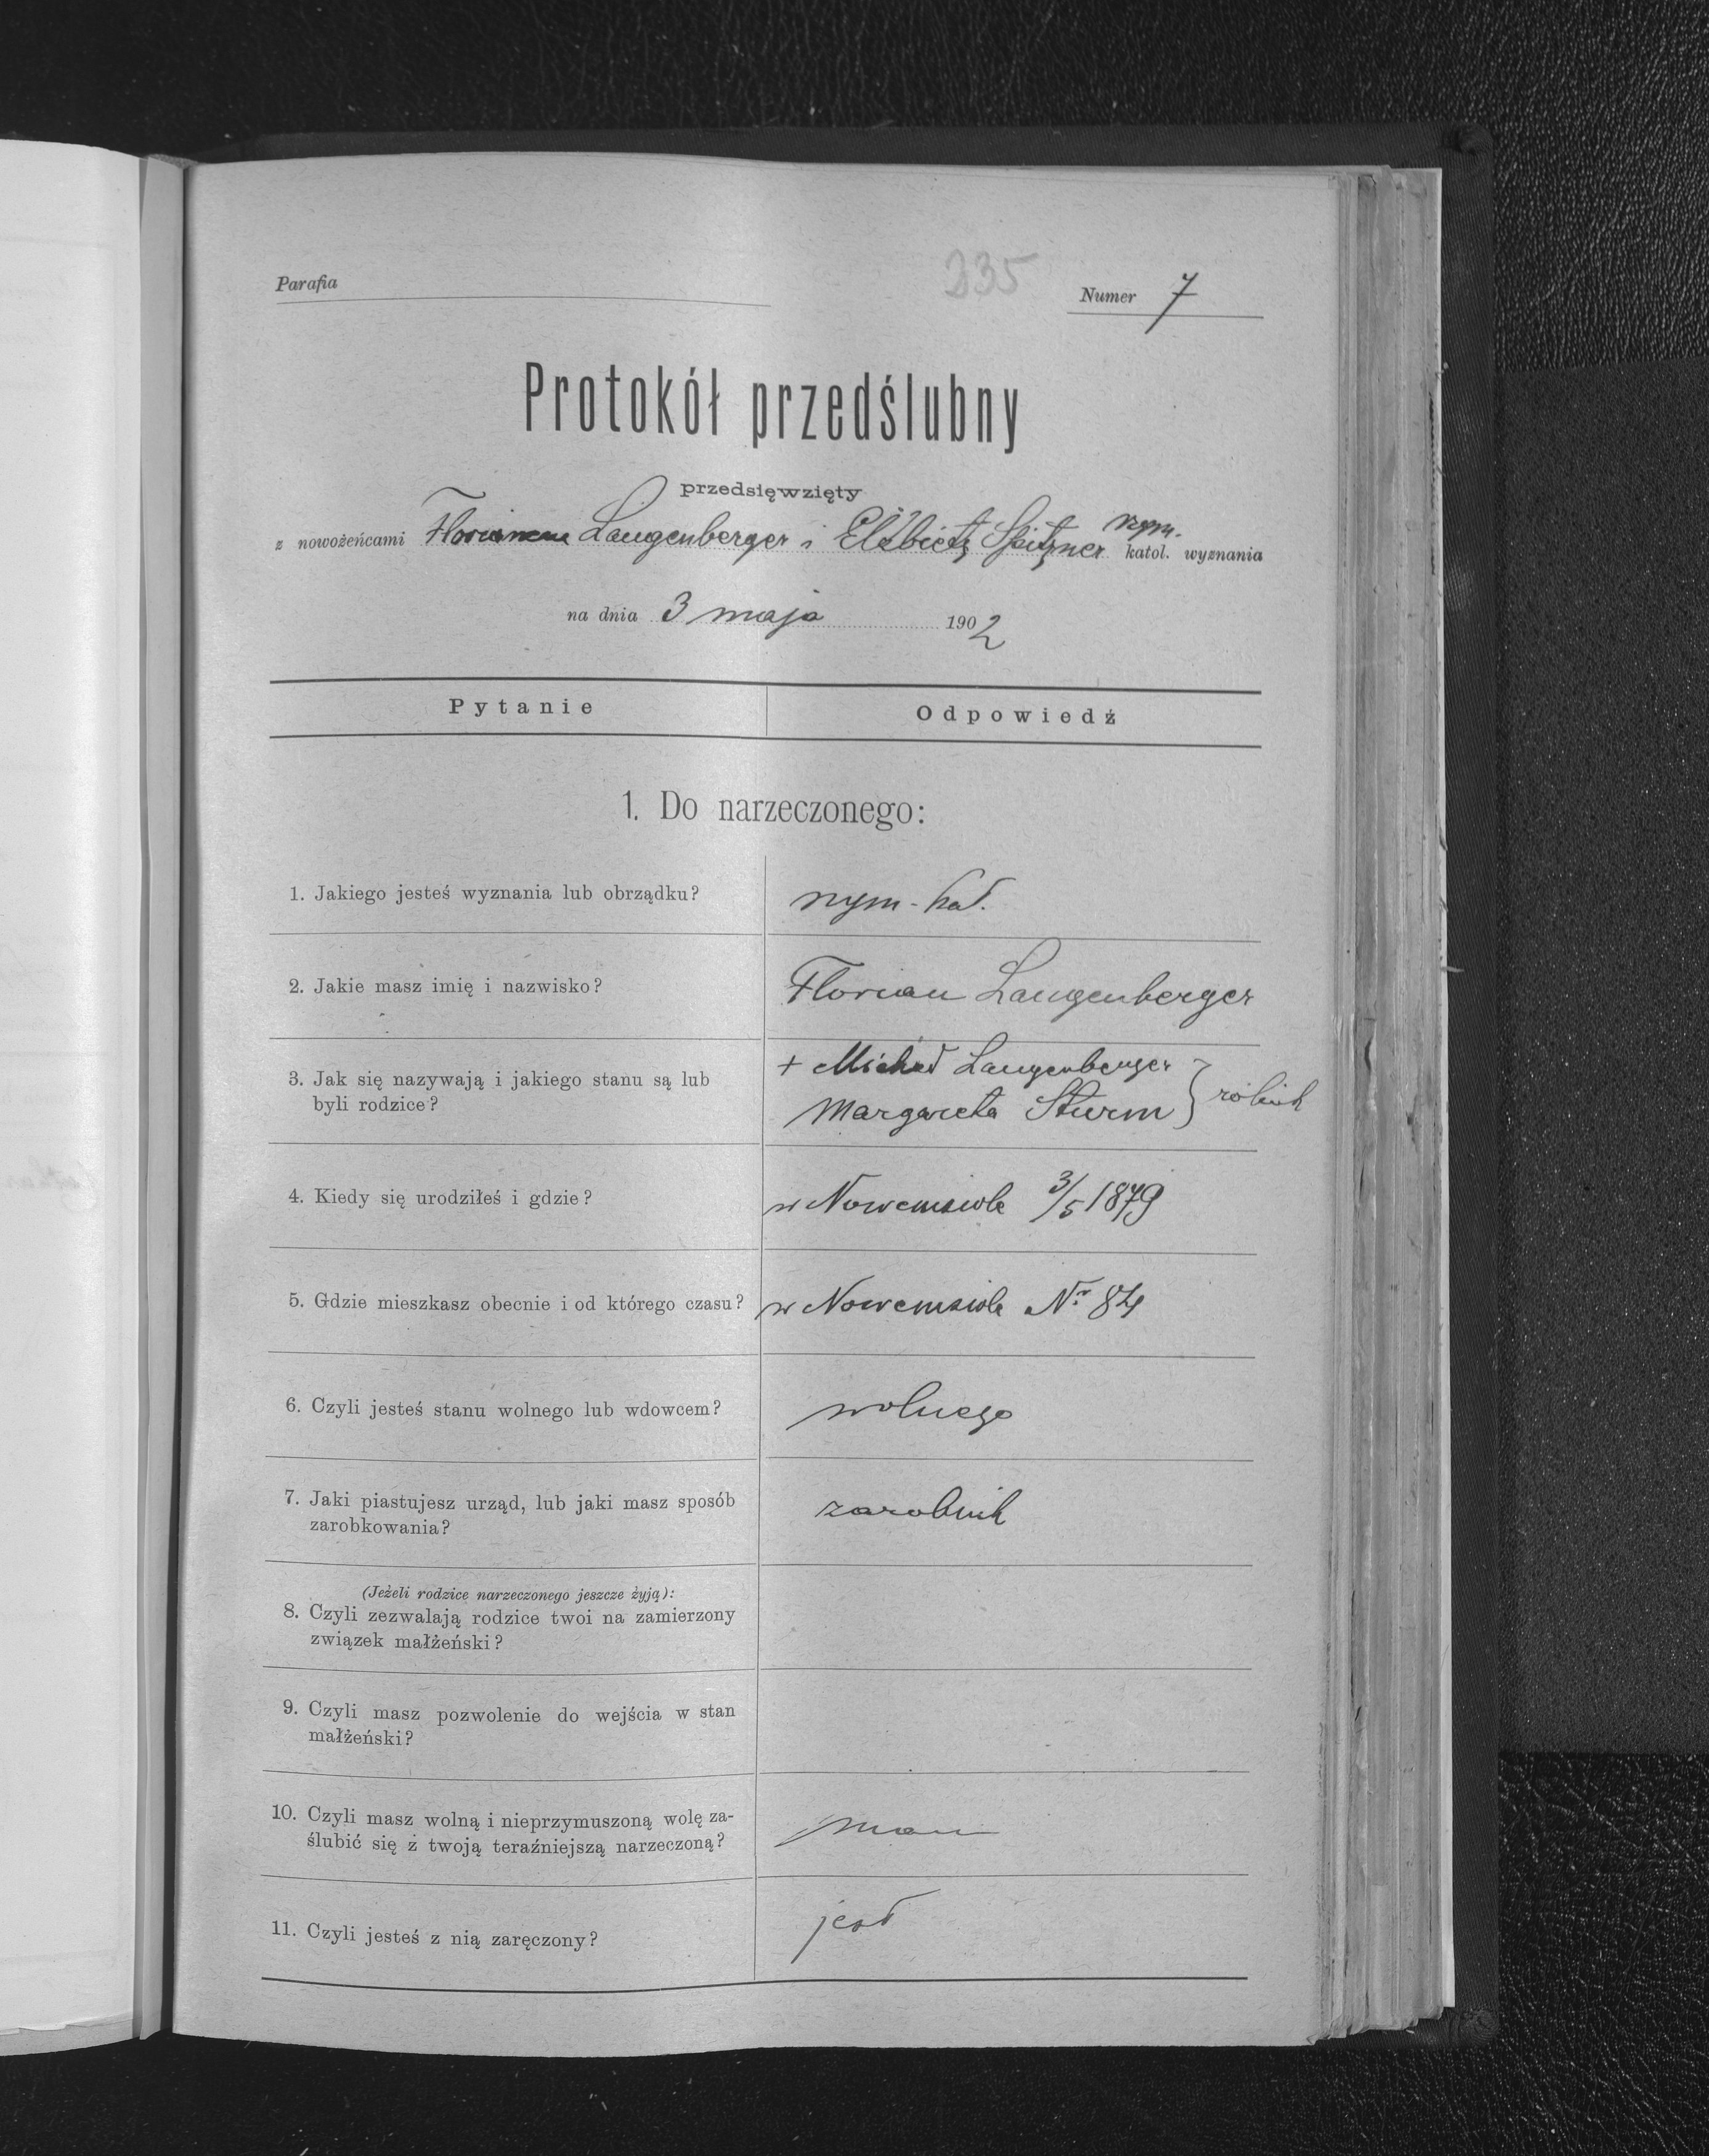 Parafia
335
Numer 7
Protokół przedślubny
przedsięwzięty
z nowożeńcami Florianem Langenberger i Elżbietą Spitzner rzym. katol. wyznania
na dnia 3 maja 1902
Pytanie
Odpowiedź
1. Do narzeczonego:
1. Jakiego jesteś wyznania lub obrządku?
rzym-kat.
2. Jakie masz imię i nazwisko?
Florian Langenberger
3. Jak się nazywają i jakiego stanu są lub
byli rodzice?
+ Michał Langenberger
Margareta Sturm } rolnik
4. Kiedy się urodziłeś i gdzie?
w Nowemsiole 3/5 1879
5. Gdzie mieszkasz obecnie i od którego czasu?
w Nowemsiole Nr 84
6. Czyli jesteś stanu wolnego lub wdowcem?
wolnego
7. Jaki piastujesz urząd, lub jaki masz sposób
zarobkowania?
zarobnik
(Jeżeli rodzice narzeczonego jeszcze żyją):
8. Czyli zezwalają rodzice twoi na zamierzony
związek małżeński?
9. Czyli masz pozwolenie do wejścia w stan
małżeński?
10. Czyli masz wolną i nieprzymuszoną wolę za-
ślubić się z twoją teraźniejszą narzeczoną?
mam
11. Czyli jesteś z nią zaręczony?
jest